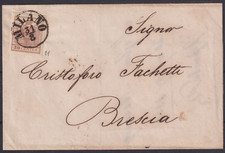 MILANO
31
8
Signor
Cristoforo Fachetti
Brescia